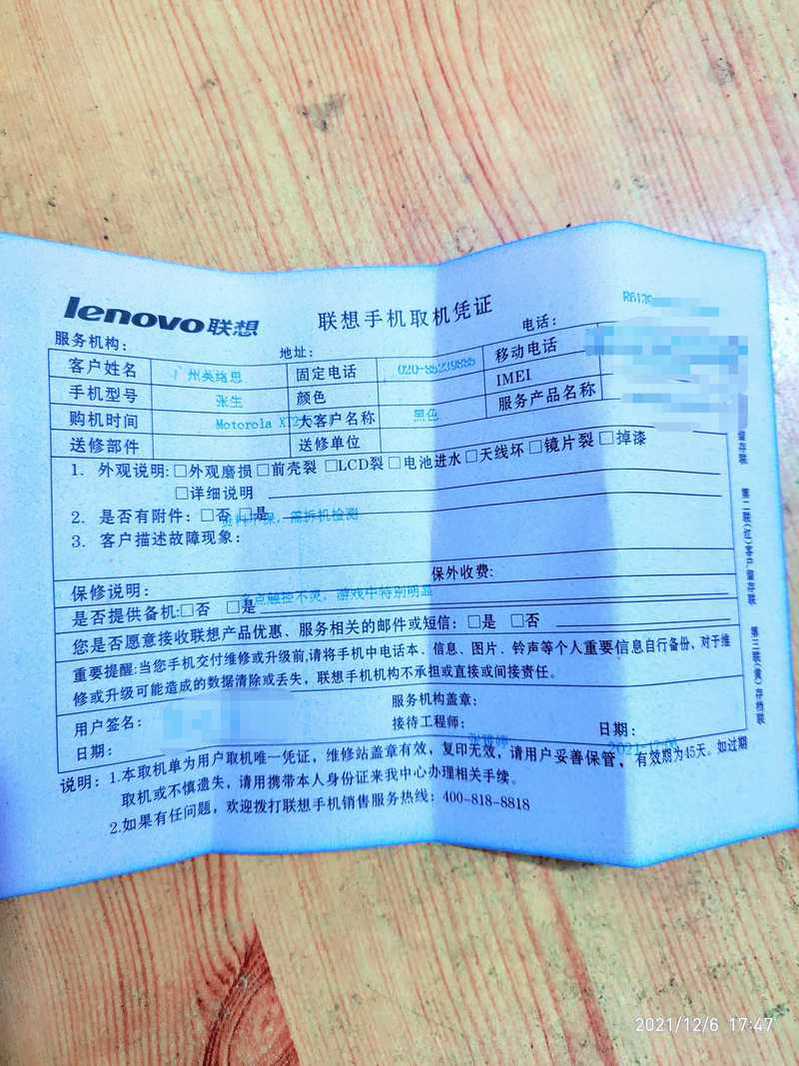 lenovo联想 联想手机取机凭证
R6139
服务机构： 地址： 电话：
客户姓名 广州英络思 固定电话 020-85239885 移动电话
手机型号 张生 颜色 IMEI
购机时间 Motorola 大客户名称 黑色 服务产品名称
送修部件 送修单位
1. 外观说明:□外观磨损□前壳裂□LCD裂□电池进水□天线坏□镜片裂□掉漆
□详细说明
2. 是否有附件：□否 □是
需拆机检测
3. 客户描述故障现象：
保外收费：
保修说明：
点触控不灵，游戏中特别明显
是否提供备机:□否 □是
您是否愿意接收联想产品优惠、服务相关的邮件或短信：□是 □否
重要提醒:当您手机交付维修或升级前,请将手机中电话本、信息、图片、铃声等个人重要信息自行备份、对于维
修或升级可能造成的数据清除或丢失，联想手机机构不承担或直接或间接责任。
用户签名： 服务机构盖章：
接待工程师：
日期： 日期：
说明：1.本取机单为用户取机唯一凭证，维修站盖章有效，复印无效，请用户妥善保管，有效期为45天。如过期
取机或不慎遗失，请用携带本人身份证来我中心办理相关手续。
2.如果有任问题，欢迎拨打联想手机销售服务热线：400-818-8818
留存联
第二联(红)客户留存联
第三联(黄)存档联
2021/12/6 17:47